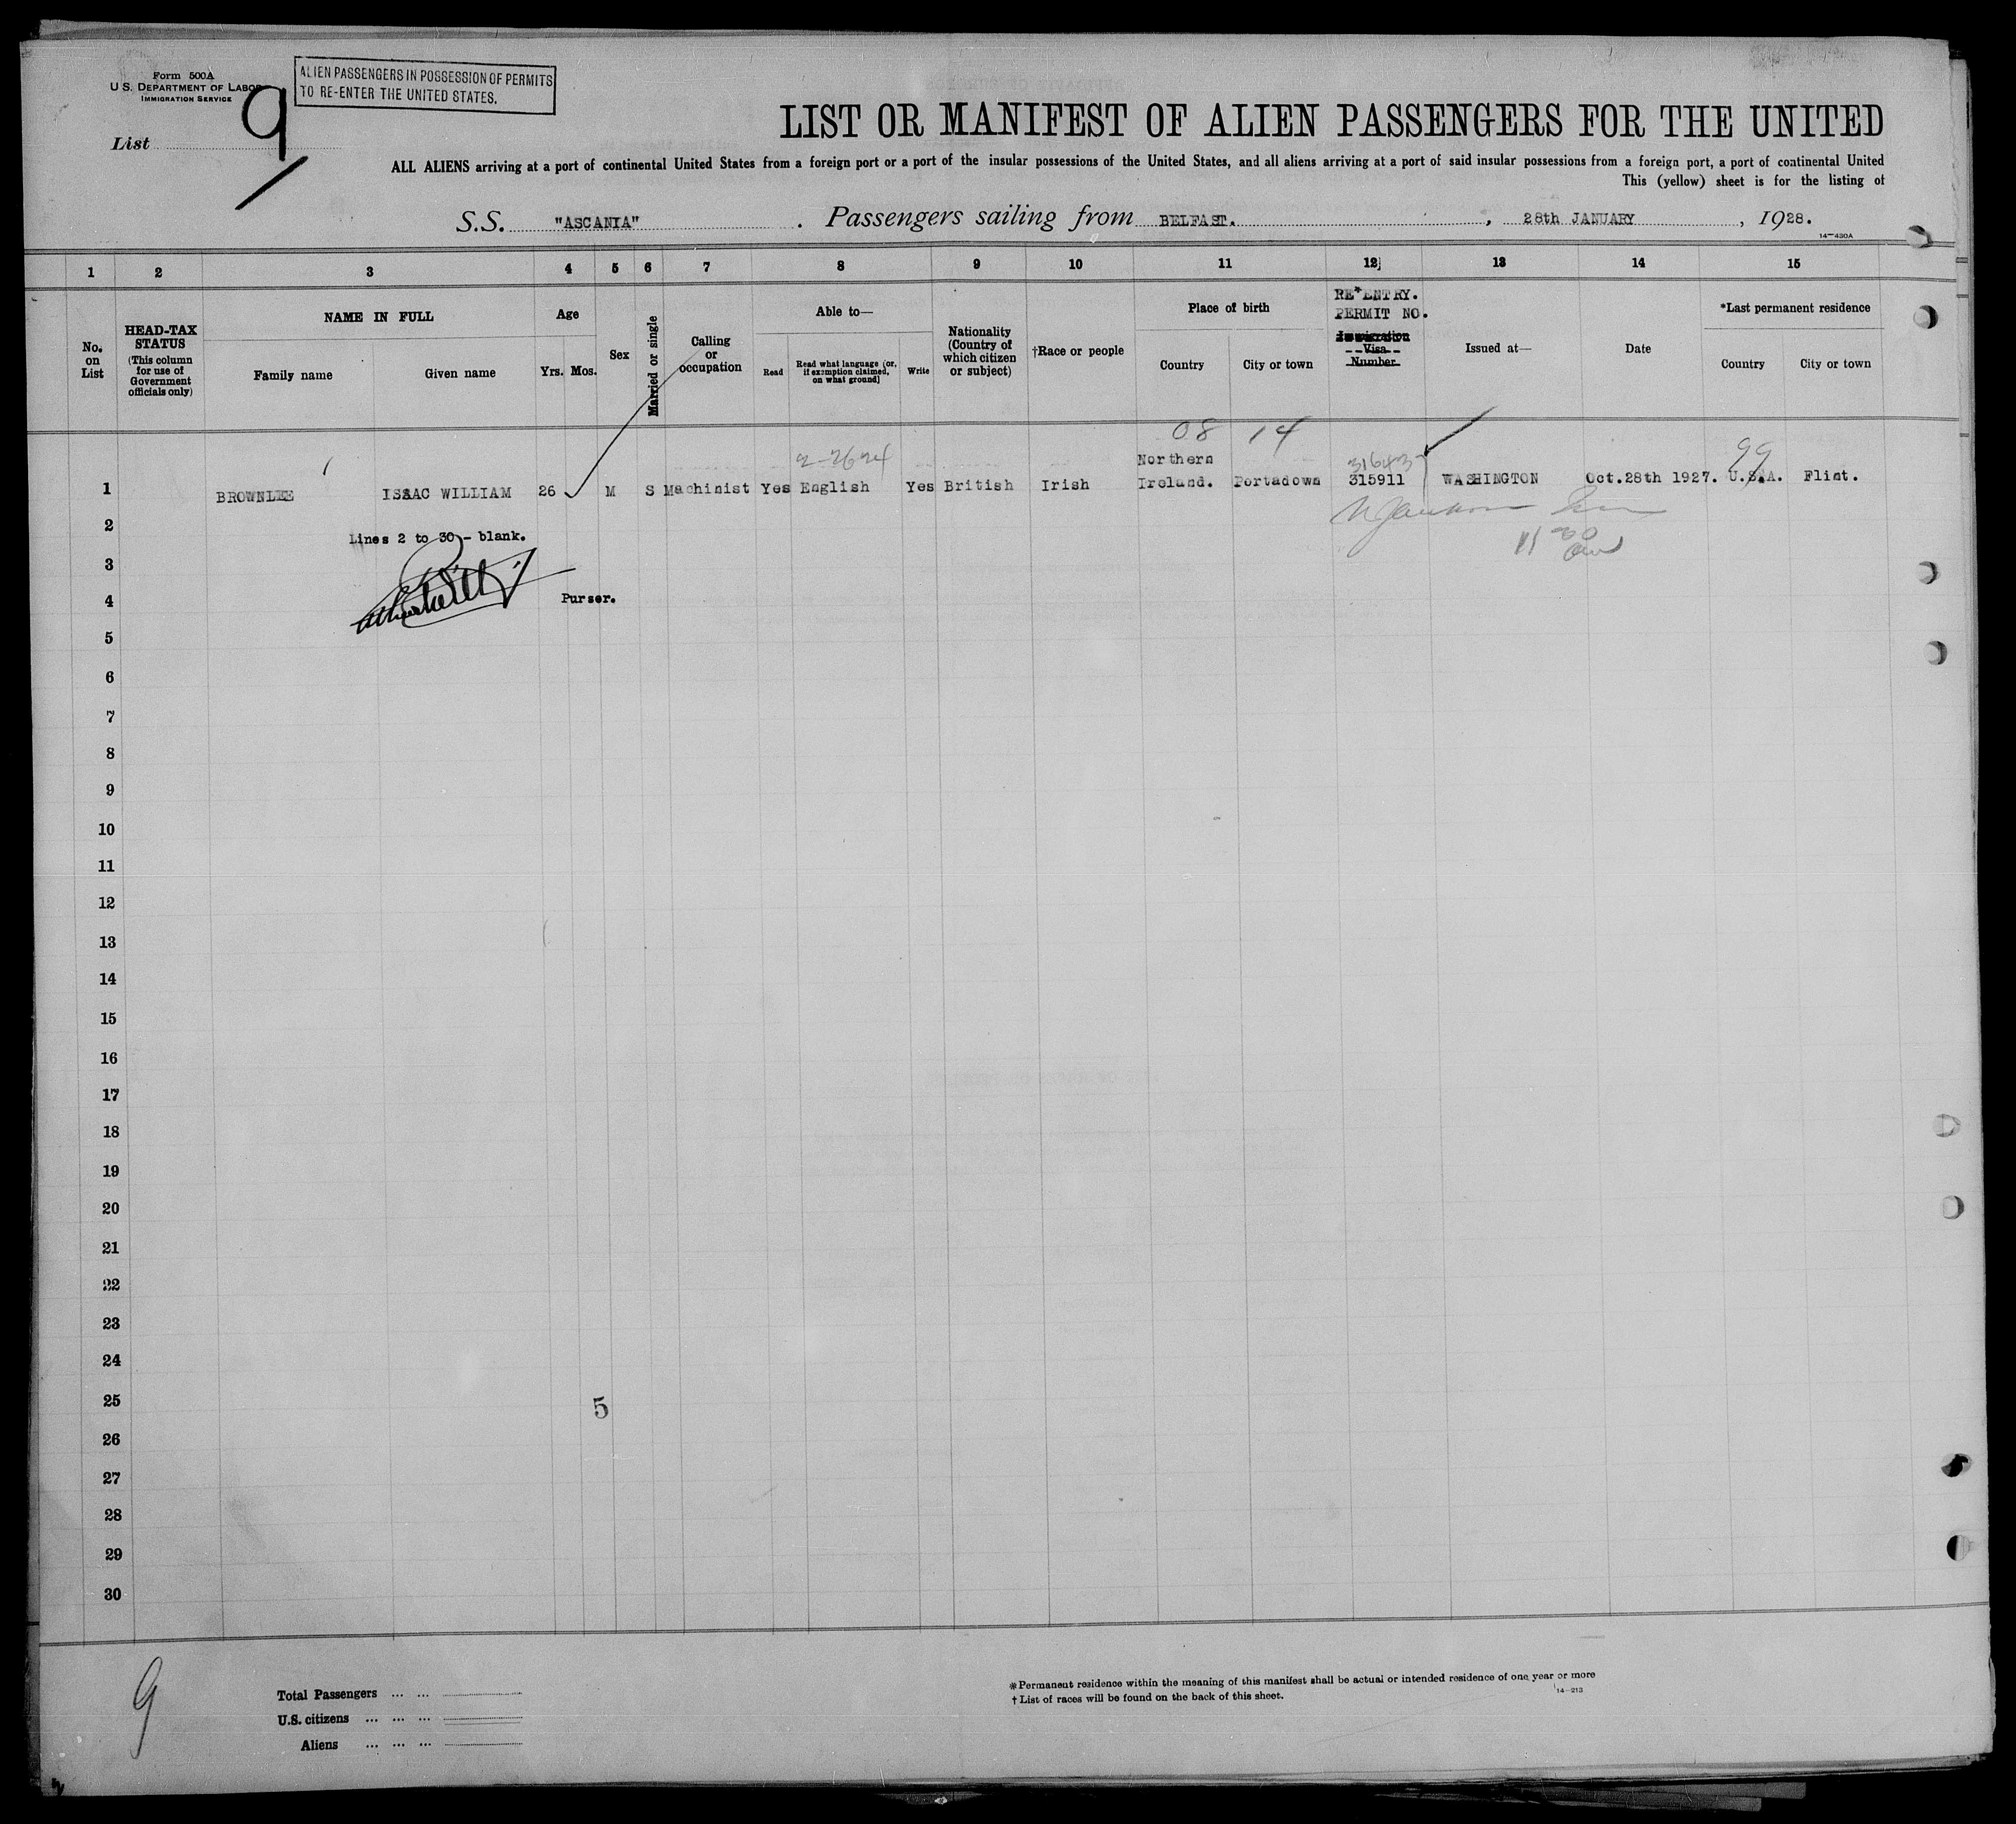 Form 500A
U. S. DEPARTMENT OF LABOR
IMMIGRATION SERVICE
ALIEN PASSENGERS IN POSSESSION OF PERMITS
TO RE-ENTER THE UNITED STATES.
List 9
LIST OR MANIFEST OF ALIEN PASSENGERS FOR THE UNITED
ALL ALIENS arriving at a port of continental United States from a foreign port or a port of the insular possessions of the United States, and all aliens arriving at a port of said insular possessions from a foreign port, a port of continental United
This (yellow) sheet is for the listing of
S.S. "ASCANIA" . Passengers sailing from BELFAST. , 28th JANUARY , 1928.
14—430A
1 2 3 4 5 6 7 8 9 10 11 12 13 14 15
No. on List
HEAD-TAX STATUS (This column for use of Government officials only)
NAME IN FULL
Family name Given name
Age
Yrs. Mos.
Sex
Married or single
Calling or occupation
Able to—
Read Read what language (or, if exemption claimed, on what ground) Write
Nationality (Country of which citizen or subject)
†Race or people
Place of birth
Country City or town
RE*ENTRY.
PERMIT NO.
Immigration
Visa
Number
Issued at—
Date
*Last permanent residence
Country City or town
08 14
2-2624 31643 99
1 BROWNLEE ISAAC WILLIAM 26 M S Machinist Yes English Yes British Irish Northern Ireland. Portadown 315911 WASHINGTON Oct.28th 1927. U.S.A. Flint.
2
Lines 2 to 30 - blank.
3
4 Purser.
5
6
7
8
9
10
11
12
13
14
15
16
17
18
19
20
21
22
23
24
25
5
26
27
28
29
30
9
Total Passengers ... ...
U.S. citizens ... ... ...
Aliens ... ... ...
*Permanent residence within the meaning of this manifest shall be actual or intended residence of one year or more
†List of races will be found on the back of this sheet.
14—213